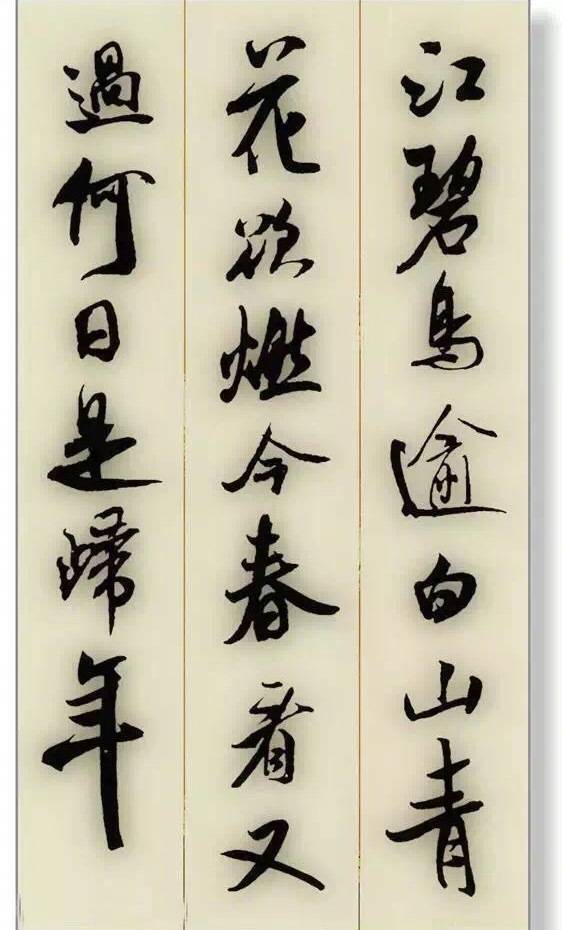 江碧鳥逾白山青
花欲燃今春看又
過何日是歸年